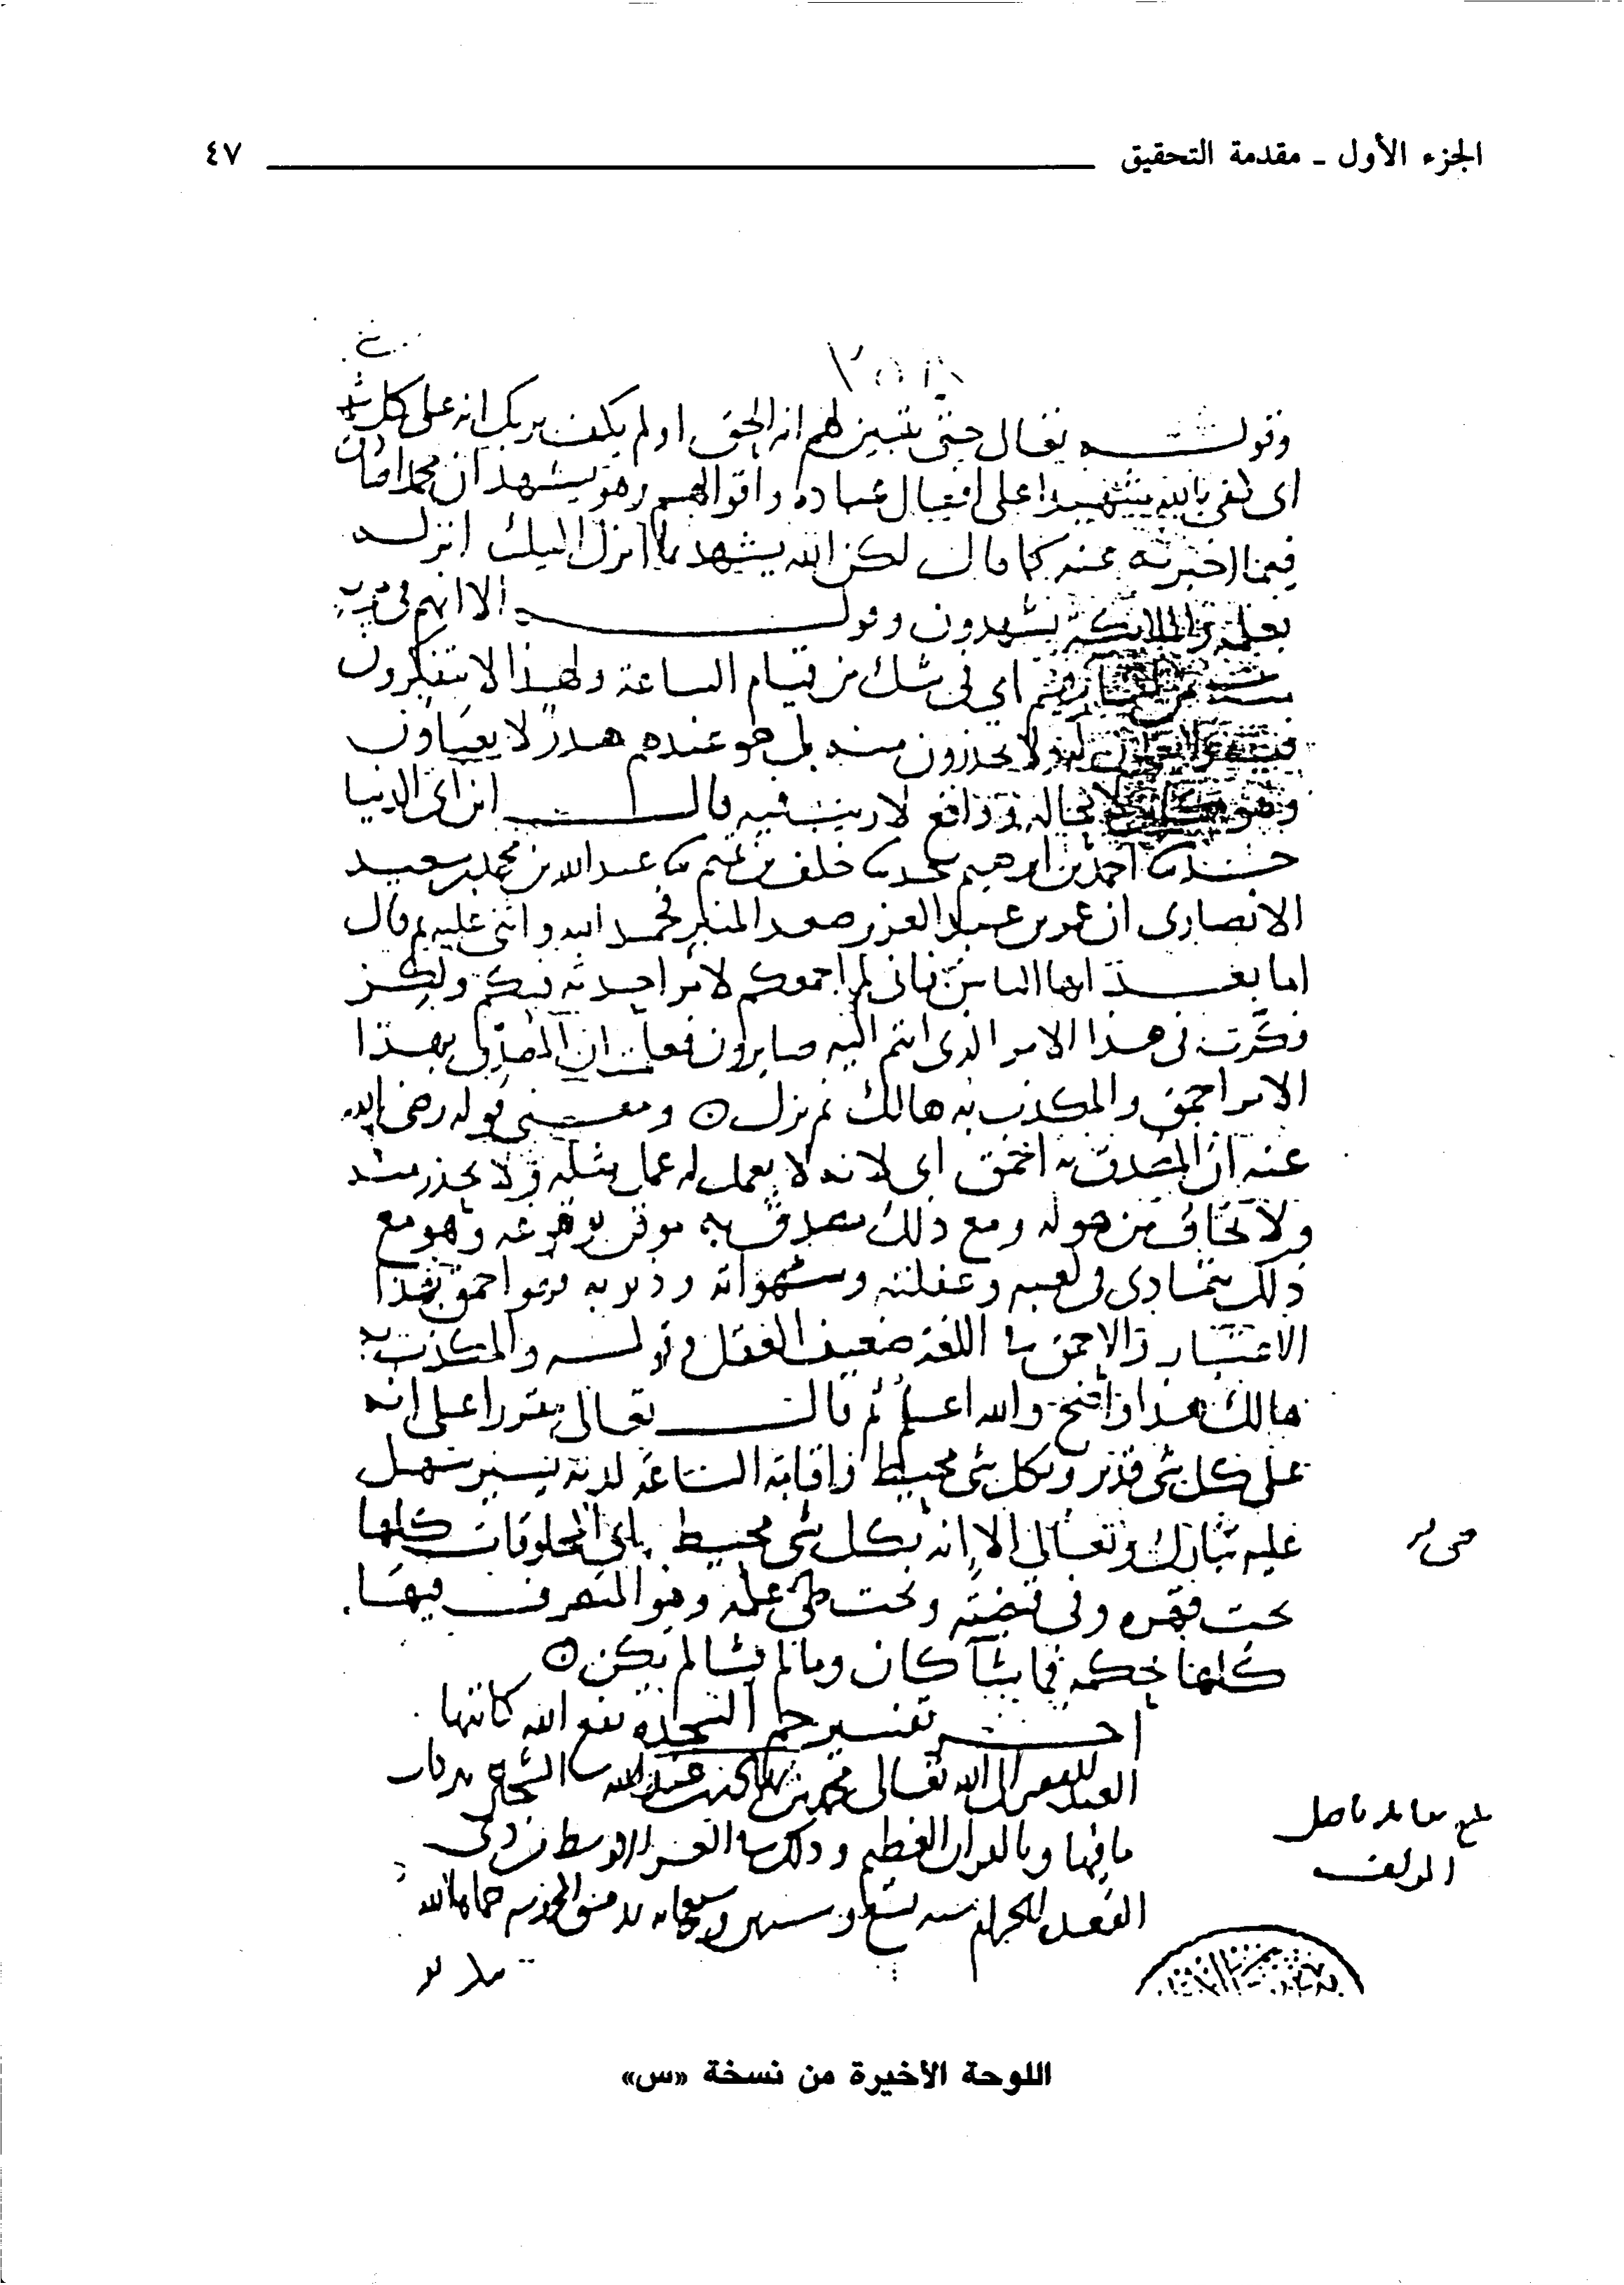 الجزء الأول ـ مقدمة التحقيق ٤٧
وقوله تعالى حتى يتبين لهم انه الحق اولم يكف بربك انه على كل
اى كفى بالله شهيدا على افعال عباده واقوالهم وهو يشهد ان محمدا صادق
فيما اخبر به عنه كما قال لكن الله يشهد بما انزل اليك انزله
بعلمه والملائكة يشهدون وقوله الا انهم في مرية
من لقاء ربهم اي في شك من قيام الساعة ولهذا لا يتفكرون
فيه ولا يعملون له ولا يحذرون منه بل هو عندهم هدر لا يعباون
وهو كاين لا محالة وواقع لا ريب فيه قال ابن ابى الدنيا
حدثنا احمد بن ابرهيم حدثنا خلف بن تميم ثنا عبد الله بن محمد بن سعيد
الانصارى ان عمر بن عبد العزيز صعد المنبر فحمد الله واثنى عليه ثم قال
اما بعد ايها الناس فانى لم اجمعكم لامر احدثه فيكم ولكن
فكرت في هذا الامر الذى انتم اليه صايرون فعلمت ان المصدق بهذا
الامر احمق والمكذب به هالك ثم نزل ومعنى قوله رضى الله
عنه ان المصدق به احمق اى لانه لا يعمل له عمل مثله ولا يحذر منه
ولا يخاف من هوله ومع ذلك مصدق به موقن بوقوعه وهو مع
ذلك يتمادى في لعبه وغفلته وشهواته وذنوبه فهو احمق بهذا
الاعتبار والاحمق في اللغة ضعيف العقل وقوله والمكذب به
هالك هذا واضح والله اعلم ثم قال تعالى مقررا على انه
على كل شى قدير وبكل شى محيط واقامة الساعة لديه يسير سهل
عليه تبارك وتعالى الا انه بكل شى محيط اي المخلوقات كلها
تحت قهره وفي قبضته وتحت طى علمه وهو المتصرف فيها
كلها بحكمه فما يشا كان وما لم يشا لم يكن
اخر تفسير حم السجدة نفع الله كاتبها
العبد الفقير الى الله تعالى محمد بن
ما فيها وبالقران العظيم وذلك في العشر الاوسط من ذى
القعدة الحرام سنة تسع وسبعمائه بدمشق المحروسه حماها الله
بلغ مقابلة باصل
المولف
اللوحة الأخيرة من نسخة «س»